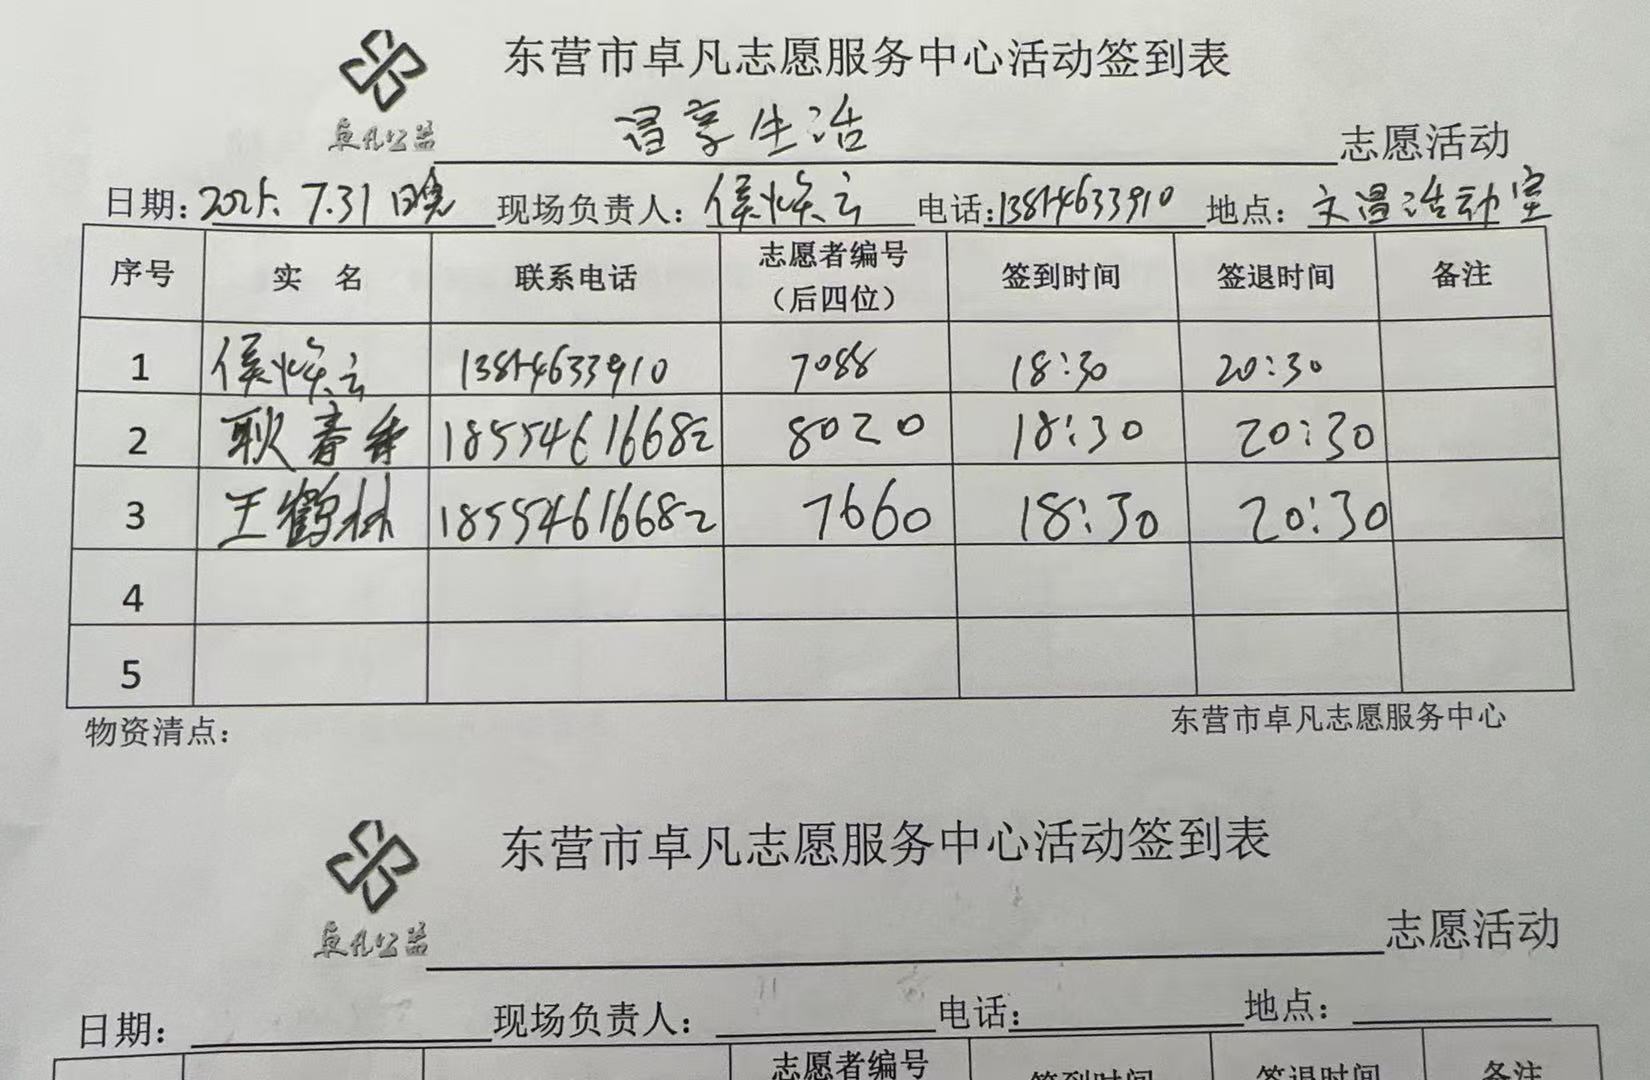 东营市卓凡志愿服务中心活动签到表
卓凡公益 享生活 志愿活动
日期：2025.7.31日晚 现场负责人：侯焕云 电话：13854633910 地点：文温活动室
序号 实 名 联系电话 志愿者编号（后四位） 签到时间 签退时间 备注
1 侯焕云 13854633910 7088 18:30 20:30
2 耿春香 18554616682 8020 18:30 20:30
3 王鹤林 18554616682 7660 18:30 20:30
4
5
物资清点： 东营市卓凡志愿服务中心
东营市卓凡志愿服务中心活动签到表
卓凡公益 志愿活动
日期： 现场负责人： 电话： 地点：
志愿者编号 签到时间 签退时间 备注